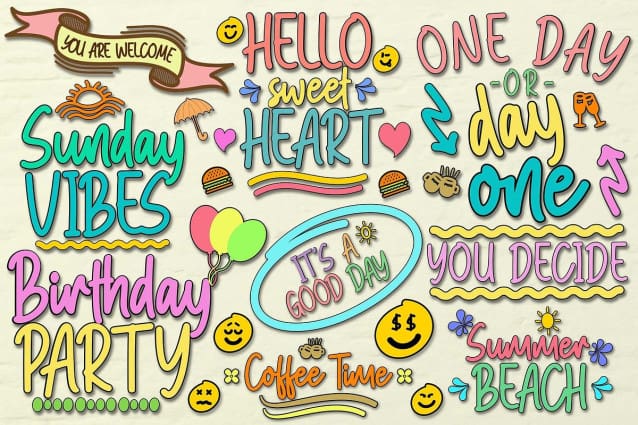 YOU ARE WELCOME
HELLO
sweet
HEART
ONE DAY
-OR-
day
one
YOU DECIDE
Sunday
VIBES
IT'S A
GOOD DAY
Birthday
PARTY
Coffee Time
Summer
BEACH
$$